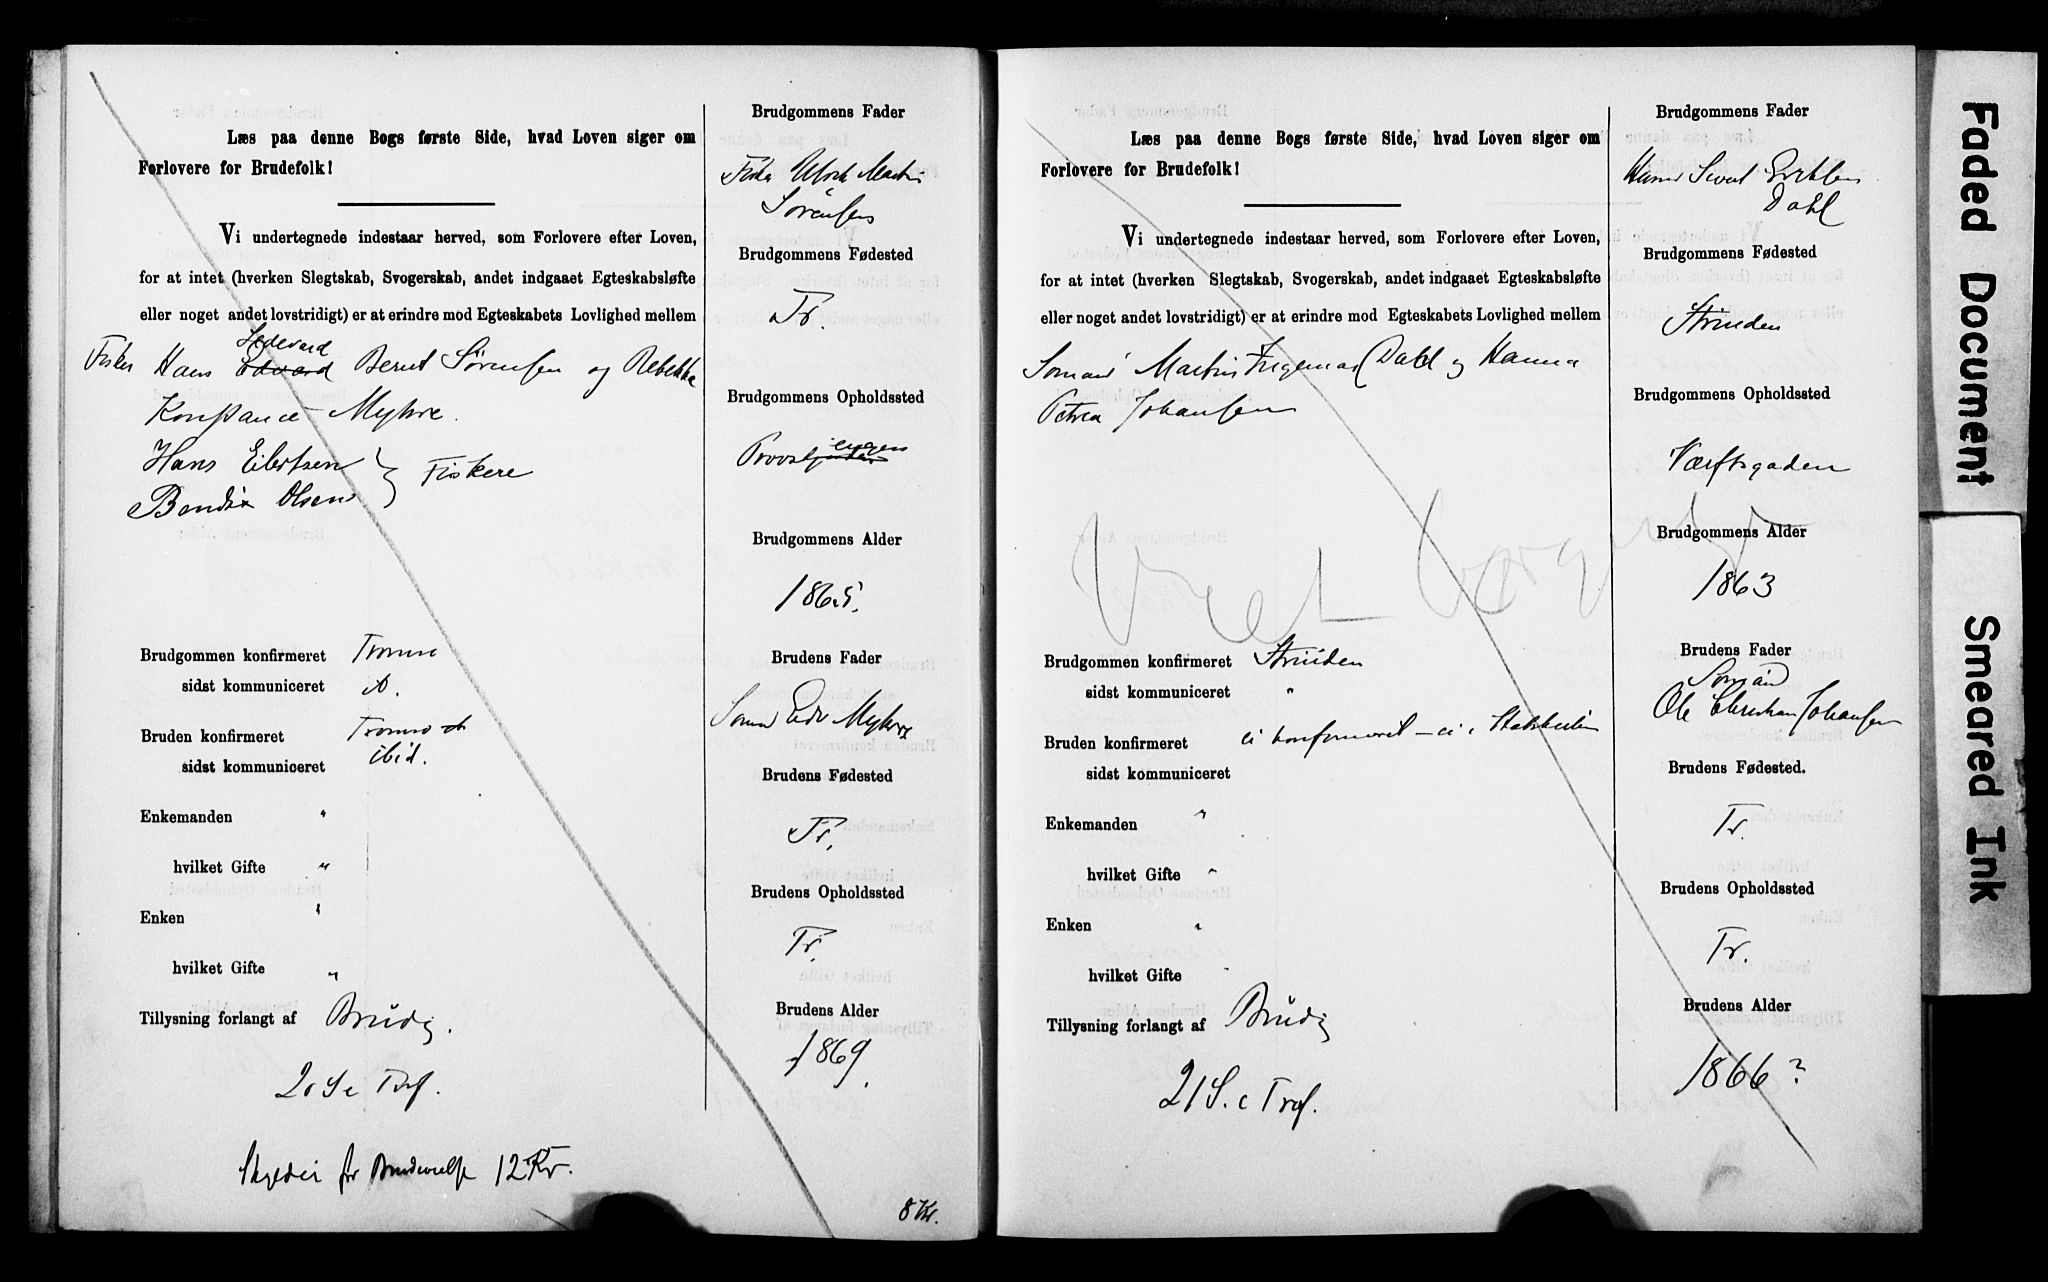 Læs paa denne Bogs første Side, hvad Loven siger om
Forlovere for Brudefolk!
Vi undertegnede indestaar herved, som Forlovere efter Loven,
for at intet (hverken Slegtskab, Svogerskab, andet indgaaet Egteskabsløfte
eller noget andet lovstridigt) er at erindre mod Egteskabets Lovlighed mellem
Fisker Hans Edvard Bernt Sørensen og Rebekka
Konstance Myhre.
Hans Eilertsen
Bendix Olsen } Fiskere
Brudgommen konfirmeret Tromsø
sidst kommuniceret
Bruden konfirmeret Tromsø
sidst kommuniceret ibid.
Enkemanden "
hvilket Gifte "
Enken "
hvilket Gifte "
Tillysning forlangt af Brudg.
20 S e Tref.
for 12 Kr.
Brudgommens Fader
Ulrik Martin
Sørensen
Brudgommens Fødested
Tr.
Brudgommens Opholdssted
Brudgommens Alder
1865.
Brudens Fader
Edv Myhre
Brudens Fødested
Tr.
Brudens Opholdssted
Tr.
Brudens Alder
1869.
8 Kr.
Læs paa denne Bogs første Side, hvad Loven siger om
Forlovere for Brudefolk!
Vi undertegnede indestaar herved, som Forlovere efter Loven,
for at intet (hverken Slegtskab, Svogerskab, andet indgaaet Egteskabsløfte
eller noget andet lovstridigt) er at erindre mod Egteskabets Lovlighed mellem
Sømand Martin Ingemar Dahl og Hanna
Petrea Johansen
Brudgommen konfirmeret Strinden
sidst kommuniceret "
Bruden konfirmeret ei konfirmeret – ei i Statskirken
sidst kommuniceret
Enkemanden "
hvilket Gifte "
Enken "
hvilket Gifte
Tillysning forlangt af Brudg
21 S. e Tref.
Brudgommens Fader
Dahl
Brudgommens Fødested
Strinden
Brudgommens Opholdssted
Værftsgaden
Brudgommens Alder
1863
Brudens Fader
Sømand
Ole Christian Johansen
Brudens Fødested.
Tr.
Brudens Opholdssted
Tr.
Brudens Alder
1866?
Faded Document
Smeared Ink